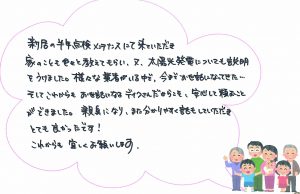 新居の半年点検メンテナンスにて来ていただき
家のことも色々と教えてもらい、又、太陽光発電についても説明
をうけました。様々な業者がいる中で、今までお世話になってきた、
そしてこれからもお世話になるテイクさんだからこそ、安心して頼むこと
ができました。親身になり、また分かりやすく話もしていただき
とても良かったです!
これからも宜しくお願いします。